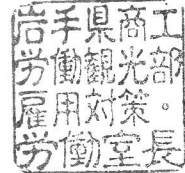 岩手県商工
労働観光部
雇用対策。
労働室長